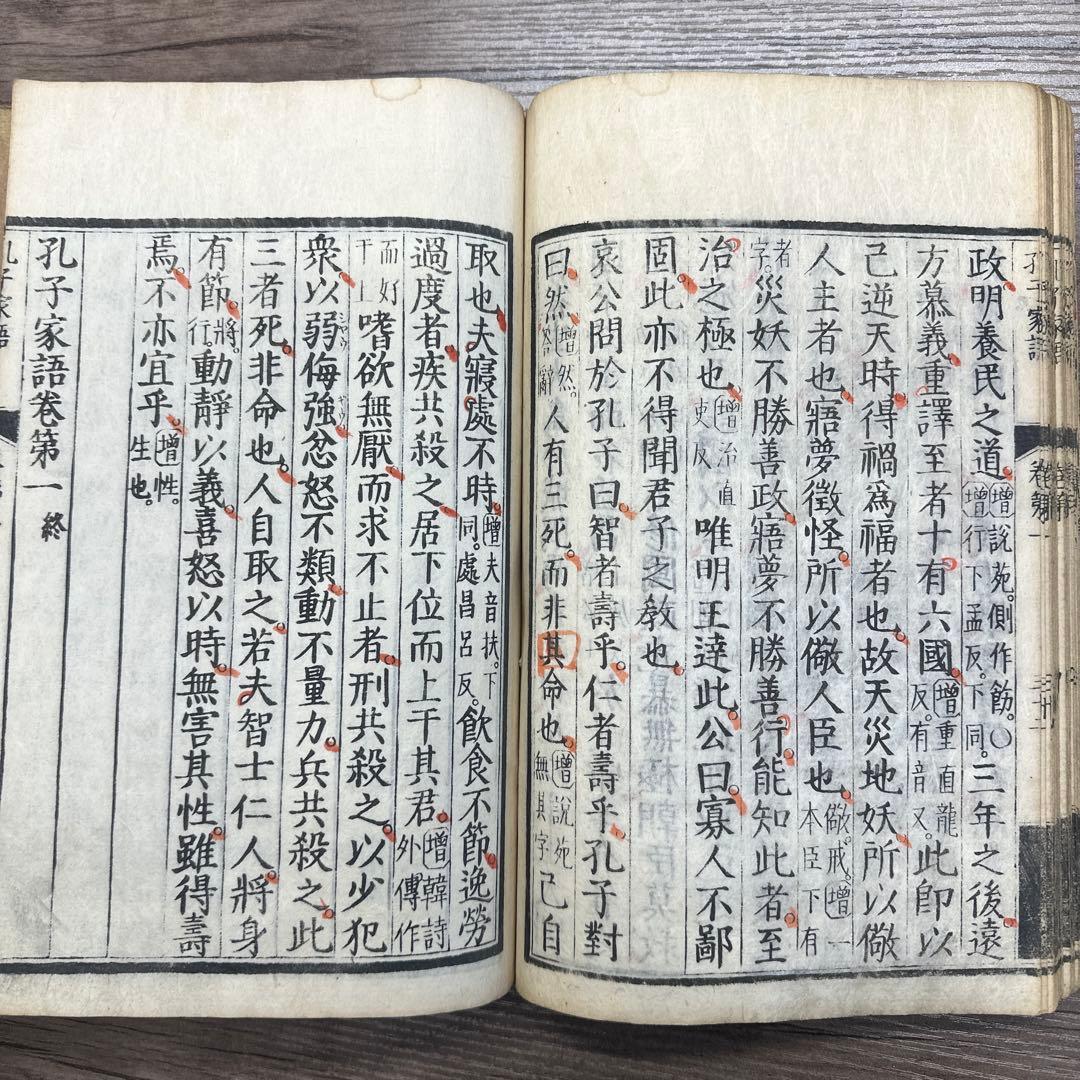 政明養民之道。增說苑。側作飭。○增行下孟反。下同。三年之後。遠
方慕義。重譯至者。十有六國。增重直龍反。有音又。此卽以
己逆天時。得禍爲福者也。故天災地妖。所以儆
人主者也。寤夢徵怪。所以儆人臣也。儆。戒。增一本臣下有
者字。災妖不勝善政。寤夢不勝善行。能知此者。至
治之極也。增治直吏反唯明王達此。公曰。寡人不鄙
固。此亦不得聞君子之敎也。
哀公問於孔子曰。智者壽乎。仁者壽乎。孔子對
曰。然。增然。答辭人有三死。而非其命也。增說苑無其字己自
取也。夫寢處不時。增夫音扶。下同。處昌呂反。飮食不節。逸勞
過度者。疾共殺之。居下位而上干其君。增韓詩外傳作
而好干上嗜欲無厭。而求不止者。刑共殺之。以少犯
衆。以弱侮強。忿怒不類。動不量力。兵共殺之。此
三者死。非命也。人自取之。若夫智士仁人。將身
有節。將。行。動靜以義。喜怒以時。無害其性。雖得壽
焉。不亦宜乎。增性。生也。
孔子家語卷第一 終
孔子家語